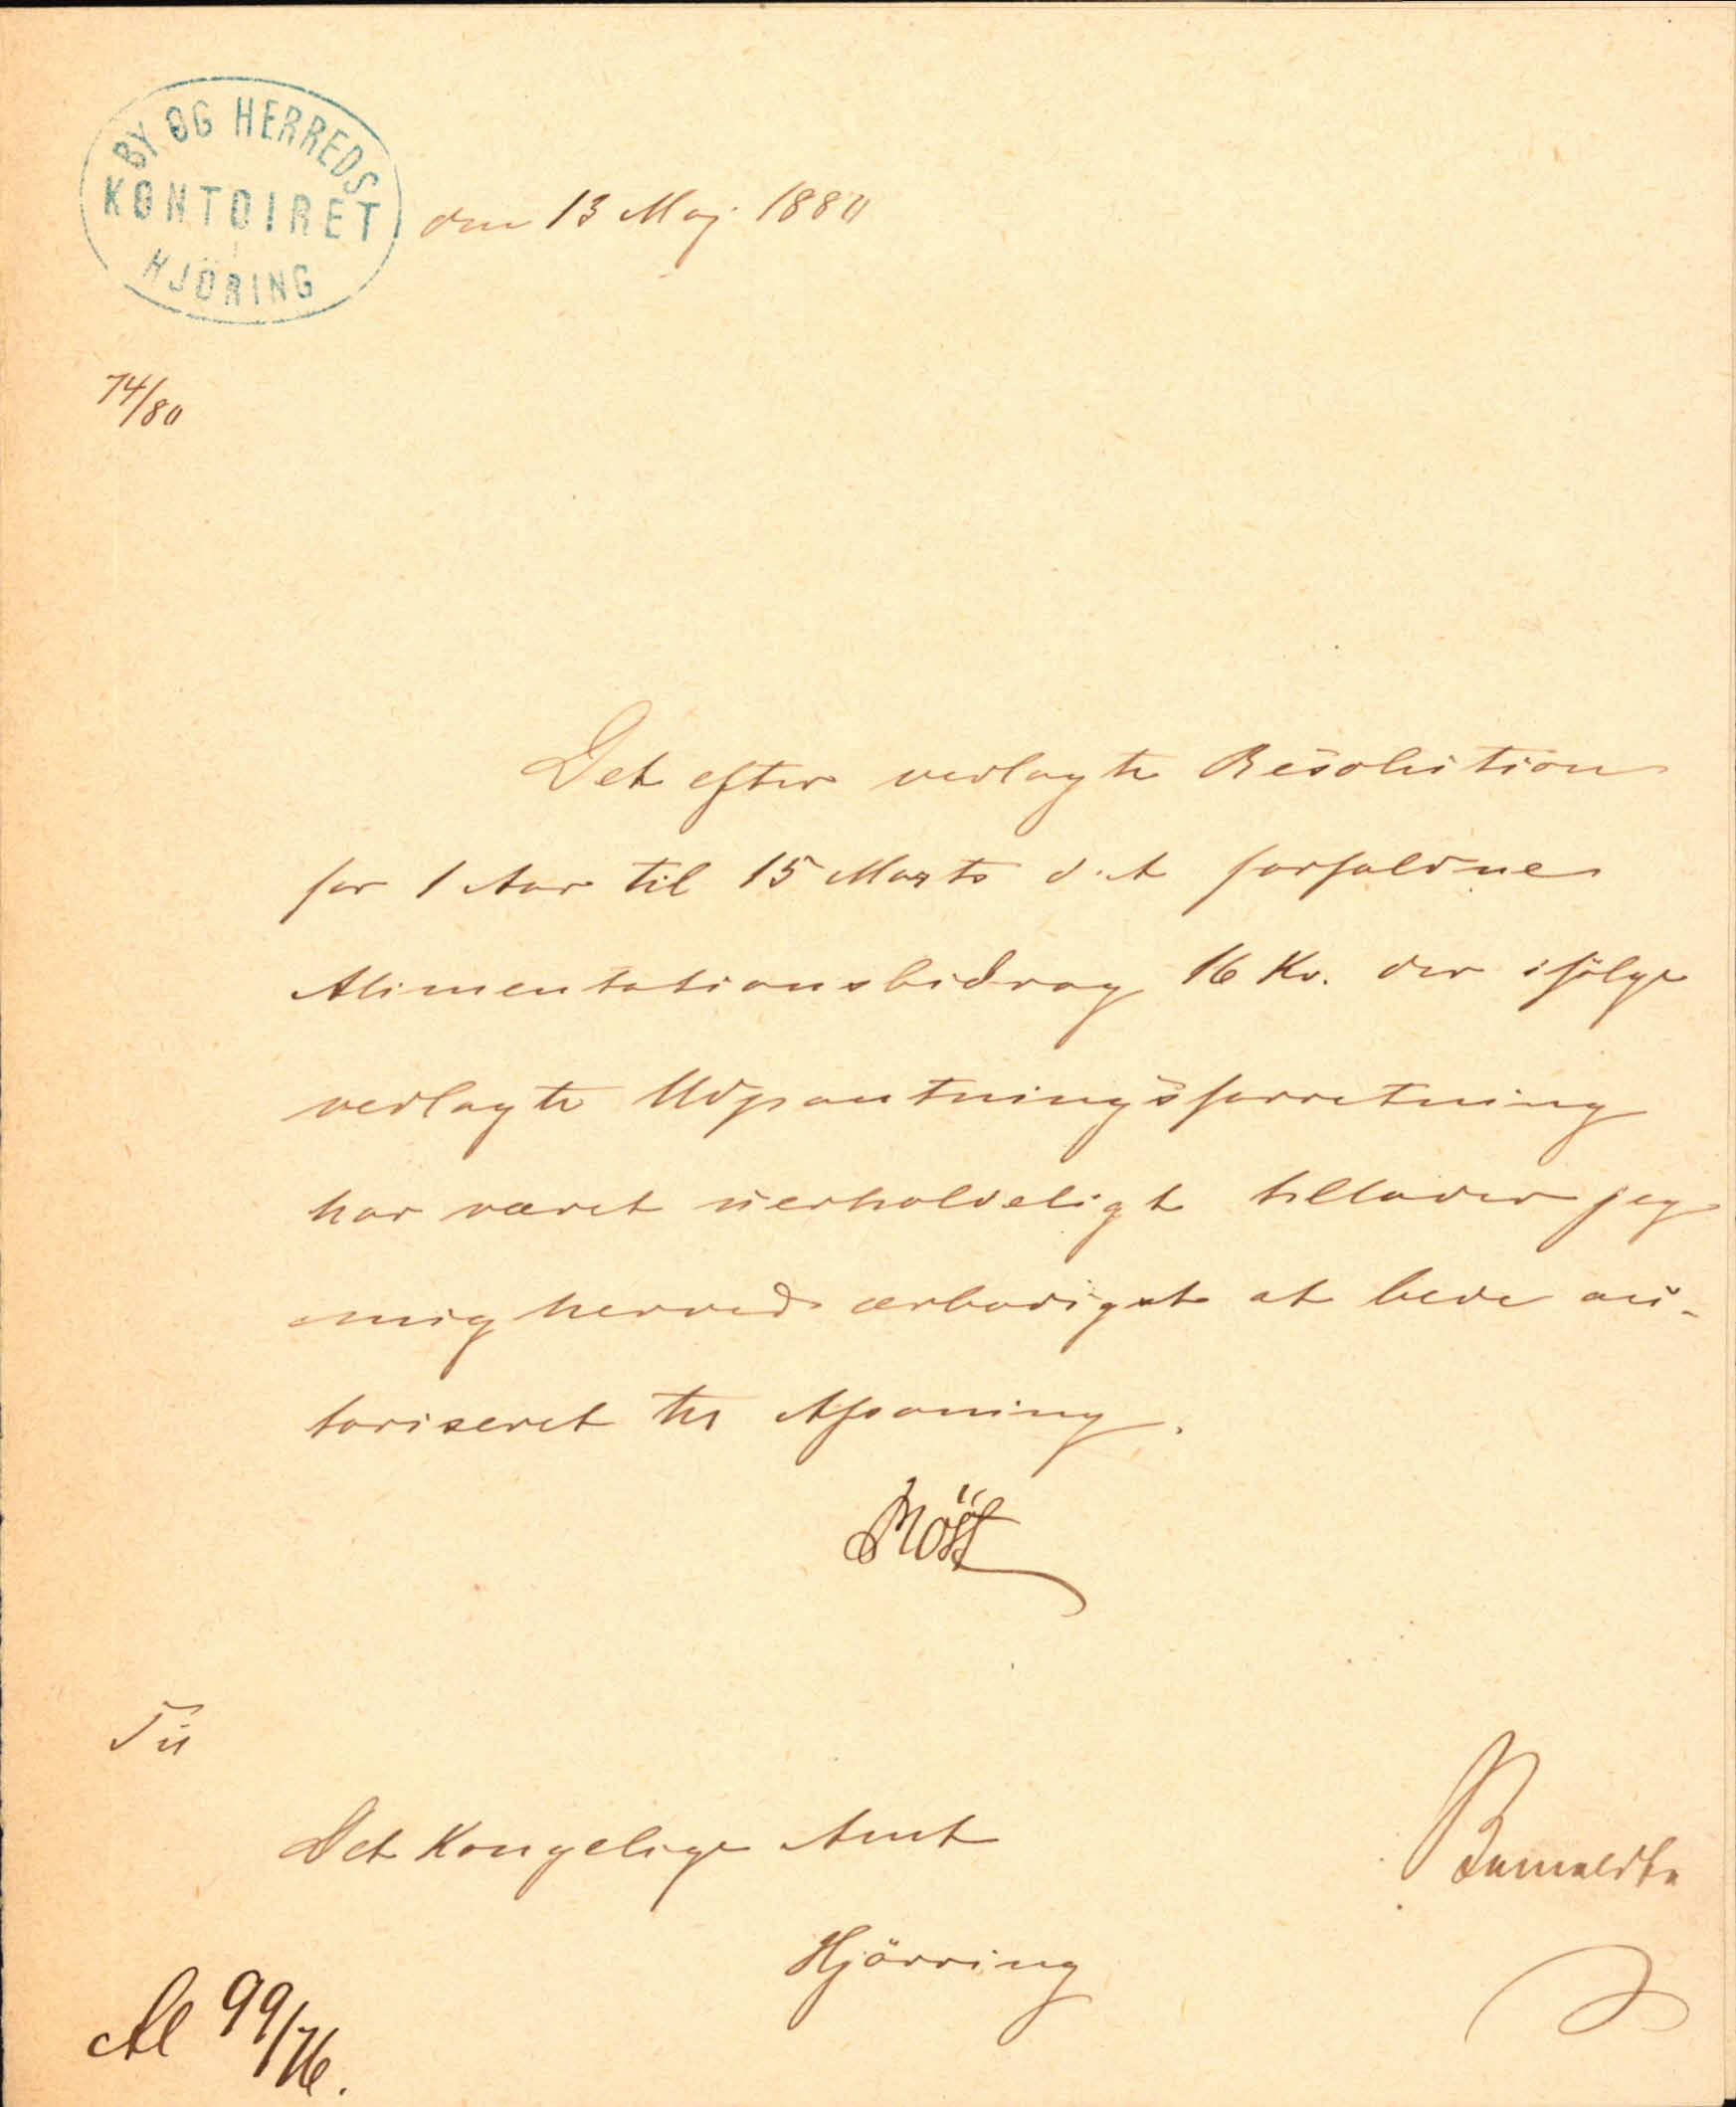 BY OG HERREDS
KONTOIRET
I
HJÖRING
den 13 Maj 1880
74/80
Det efter vedlagte Resolution
for 1 Aar til 15 Marts d. A forfaldne
Alimentationsbidrag 16 Kr. der ifölge
vedlagte Udpantningsforretning
har været uerholdeligt tillader jeg
mig herved ærbødigst at bede au-
toriseret til Afsoning.
Til
Det Kongelige Amt
Hjörring
Al 99/76.